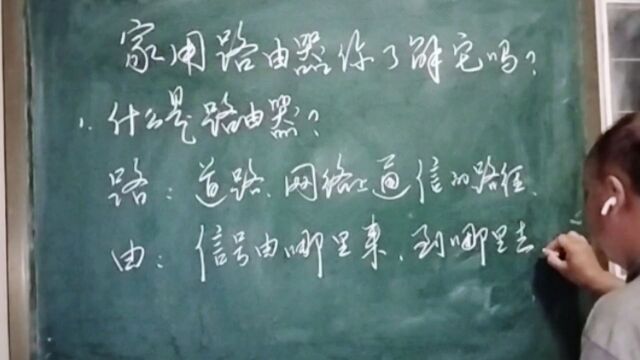 家用路由器你了解它吗?
1、什么是路由器?
路:道路、网络上通信的路径、
由:信号由哪里来、到哪里去